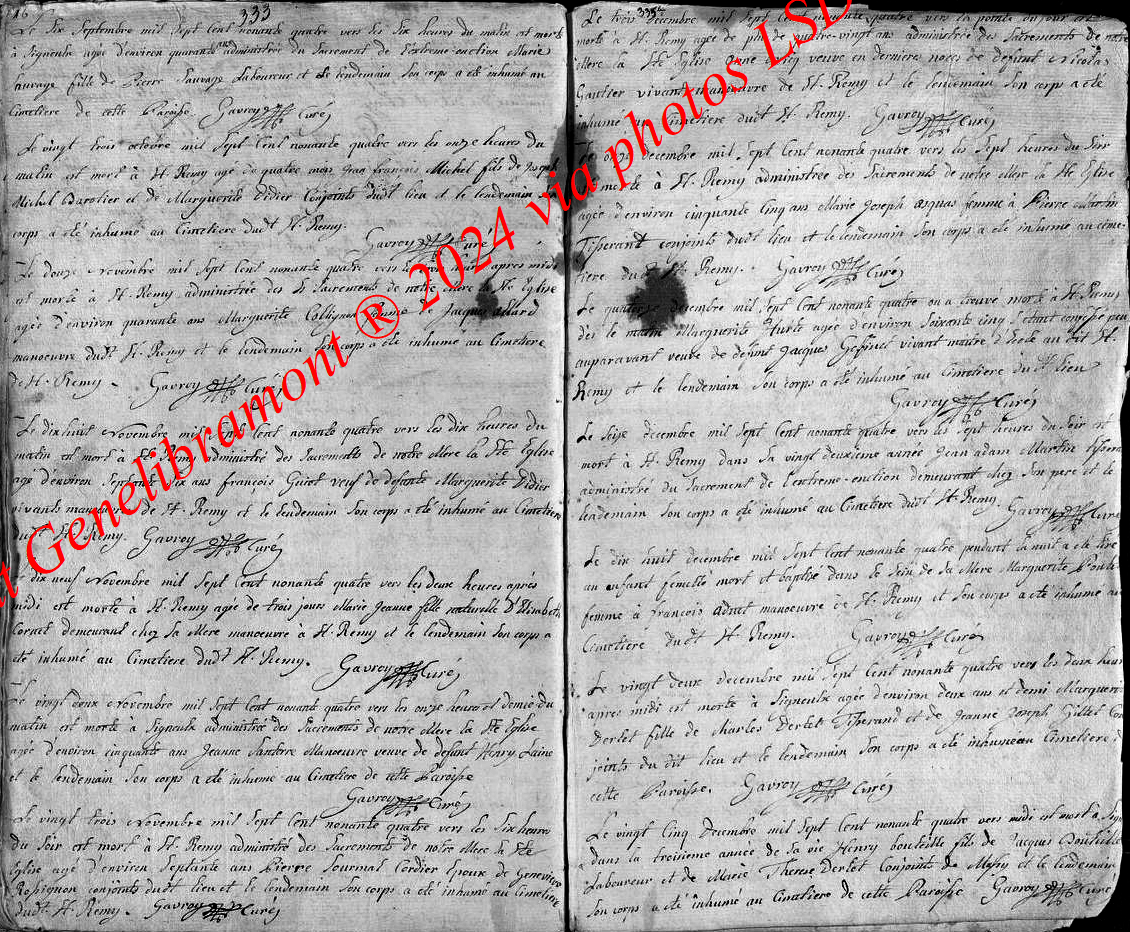 333
Le Six Septembre mil Sept Cent nonante quatre vers les dix heures du matin est morte
à Signeulx agée d'environ quarante ans administrée du Sacrement de l'extreme-onction Marie
Sauvage fille de Pierre Sauvage Laboureur et le lendemain Son corps a été inhumé au
Cimetiere de cette Paroisse. Gavroy Curé
Le vingt trois octobre mil Sept Cent nonante quatre vers les onze heures du
matin est mort à St. Remy agé de quatre mois Jean françois Michel fils de Joseph
Michel Barotier et de Marguerite Didier Conjoints dudt lieu et le lendemain Son
corps a été inhumé au Cimetiere dudt St. Remy.
Gavroy Curé
Le Douze Novembre mil Sept Cent nonante quatre vers après midi
est morte à St. Remy administrée des Sts Sacrements de notre Mere la Ste Eglise
agée d'environ quarante ans Marguerite Collignon femme de Jacques Allard
manoeuvre dudt St. Remy et le lendemain Son corps a été inhumé au Cimetiere
de St. Remy. Gavroy Curé
Le dix huit Novembre mil Sept Cent nonante quatre vers les dix heures du
matin est mort à St. Remy administré des Sacrements de notre Mere la Ste Eglise
agé d'environ Septante Six ans françois Guiot veuf de defunte Marguerite Didier
vivants manoeuvres de St. Remy et le lendemain Son corps a été inhumé au Cimetiere
dudt St. Remy. Gavroy Curé
Le dix neuf Novembre mil Sept Cent nonante quatre vers les deux heures après
midi est morte à St. Remy agée de trois jours Marie Jeanne fille naturelle d'Elisabeth
Cornet demeurant chez Sa Mere manoeuvre à St. Remy et le lendemain Son corps a
été inhumé au Cimetiere dudt St. Remy. Gavroy Curé
Le vingt deux Novembre mil Sept Cent nonante quatre vers les onze heures et demie du
matin est morte à Signeulx administrée des Sacrements de notre Mere la Ste Eglise
agée d'environ cinquante ans Jeanne Manoeuvre veuve de defunt Henry Laine
et le lendemain Son corps a été inhumé au Cimetiere de cette Paroisse
Gavroy Curé
Le vingt trois Novembre mil Sept Cent nonante quatre vers les Six heures
du Soir est mort à St. Remy administré des Sacrements de notre Mere la Ste
Eglise agé d'environ Septante ans Pierre Journal Cordier Epoux de Genevieve
Rossignon conjoints dudt lieu et le lendemain Son corps a été inhumé au Cimetiere
dudt St. Remy. Gavroy Curé
Le trois Décembre mil Sept Cent nonante quatre vers la pointe du jour est
morte à St. Remy agée de plus de quatre-vingt ans administrée des Sacrements de notre
Mere la Ste Eglise veuve en dernieres noces de defunt Nicolas
Gautier vivant manoeuvre de St. Remy et le lendemain Son corps a été
inhumé au Cimetiere dudt St. Remy. Gavroy Curé
Le onze Decembre mil Sept Cent nonante quatre vers les Sept heures du Soir
est morte à St. Remy administrée des Sacrements de notre Mere la Ste Eglise
agée d'environ cinquante Cinq ans Marie Joseph Asquas femme à Pierre
Tisserant conjoints dudt lieu et le lendemain Son corps a été inhumé au cime-
tiere dudt St. Remy. Gavroy Curé
Le quatorze decembre mil Sept Cent nonante quatre on a trouvé morte à St. Remy
dès le matin Marguerite agée d'environ Soixante cinq peu
auparavant veuve de defunt Jacques vivant maitre d'école au dit St.
Remy et le lendemain Son corps a été inhumé au Cimetiere dudt lieu
Gavroy Curé
Le Seize decembre mil Sept Cent nonante quatre vers les Sept heures du Soir est
mort à St. Remy dans Sa vingt deuxieme année Jean adam Martin Tisserant
administré du Sacrement de l'extreme-onction demeurant chez Son pere et le
lendemain Son corps a été inhumé au Cimetiere dudt St. Remy. Gavroy Curé
Le dix huit decembre mil Sept Cent nonante quatre pendant la nuit a été tiré
un enfant femelle mort et baptisé dans le Sein de Sa Mere Marguerite
femme à françois Adnet manoeuvre de St. Remy et Son corps a été inhumé au
Cimetiere dudt St. Remy. Gavroy Curé
Le vingt deux decembre mil Sept Cent nonante quatre vers les deux heures
après midi est morte à Signeulx agée d'environ deux ans et demi Marguerite
Derlet fille de Charles Derlet Tisserand et de Jeanne Joseph Gillet Con-
joints du dit lieu et le lendemain Son corps a été inhumé au Cimetiere de
cette Paroisse. Gavroy Curé
Le vingt Cinq Decembre mil Sept Cent nonante quatre vers midi est mort à
dans la troisieme année de Sa vie Henry bouteille fils de Jacques Bouteille
Laboureur et de Marie Therese Derlet Conjoints de et le lendemain
Son corps a été inhumé au Cimetiere de cette Paroisse Gavroy Curé
Genelibramont ® 2024 via photos LSD